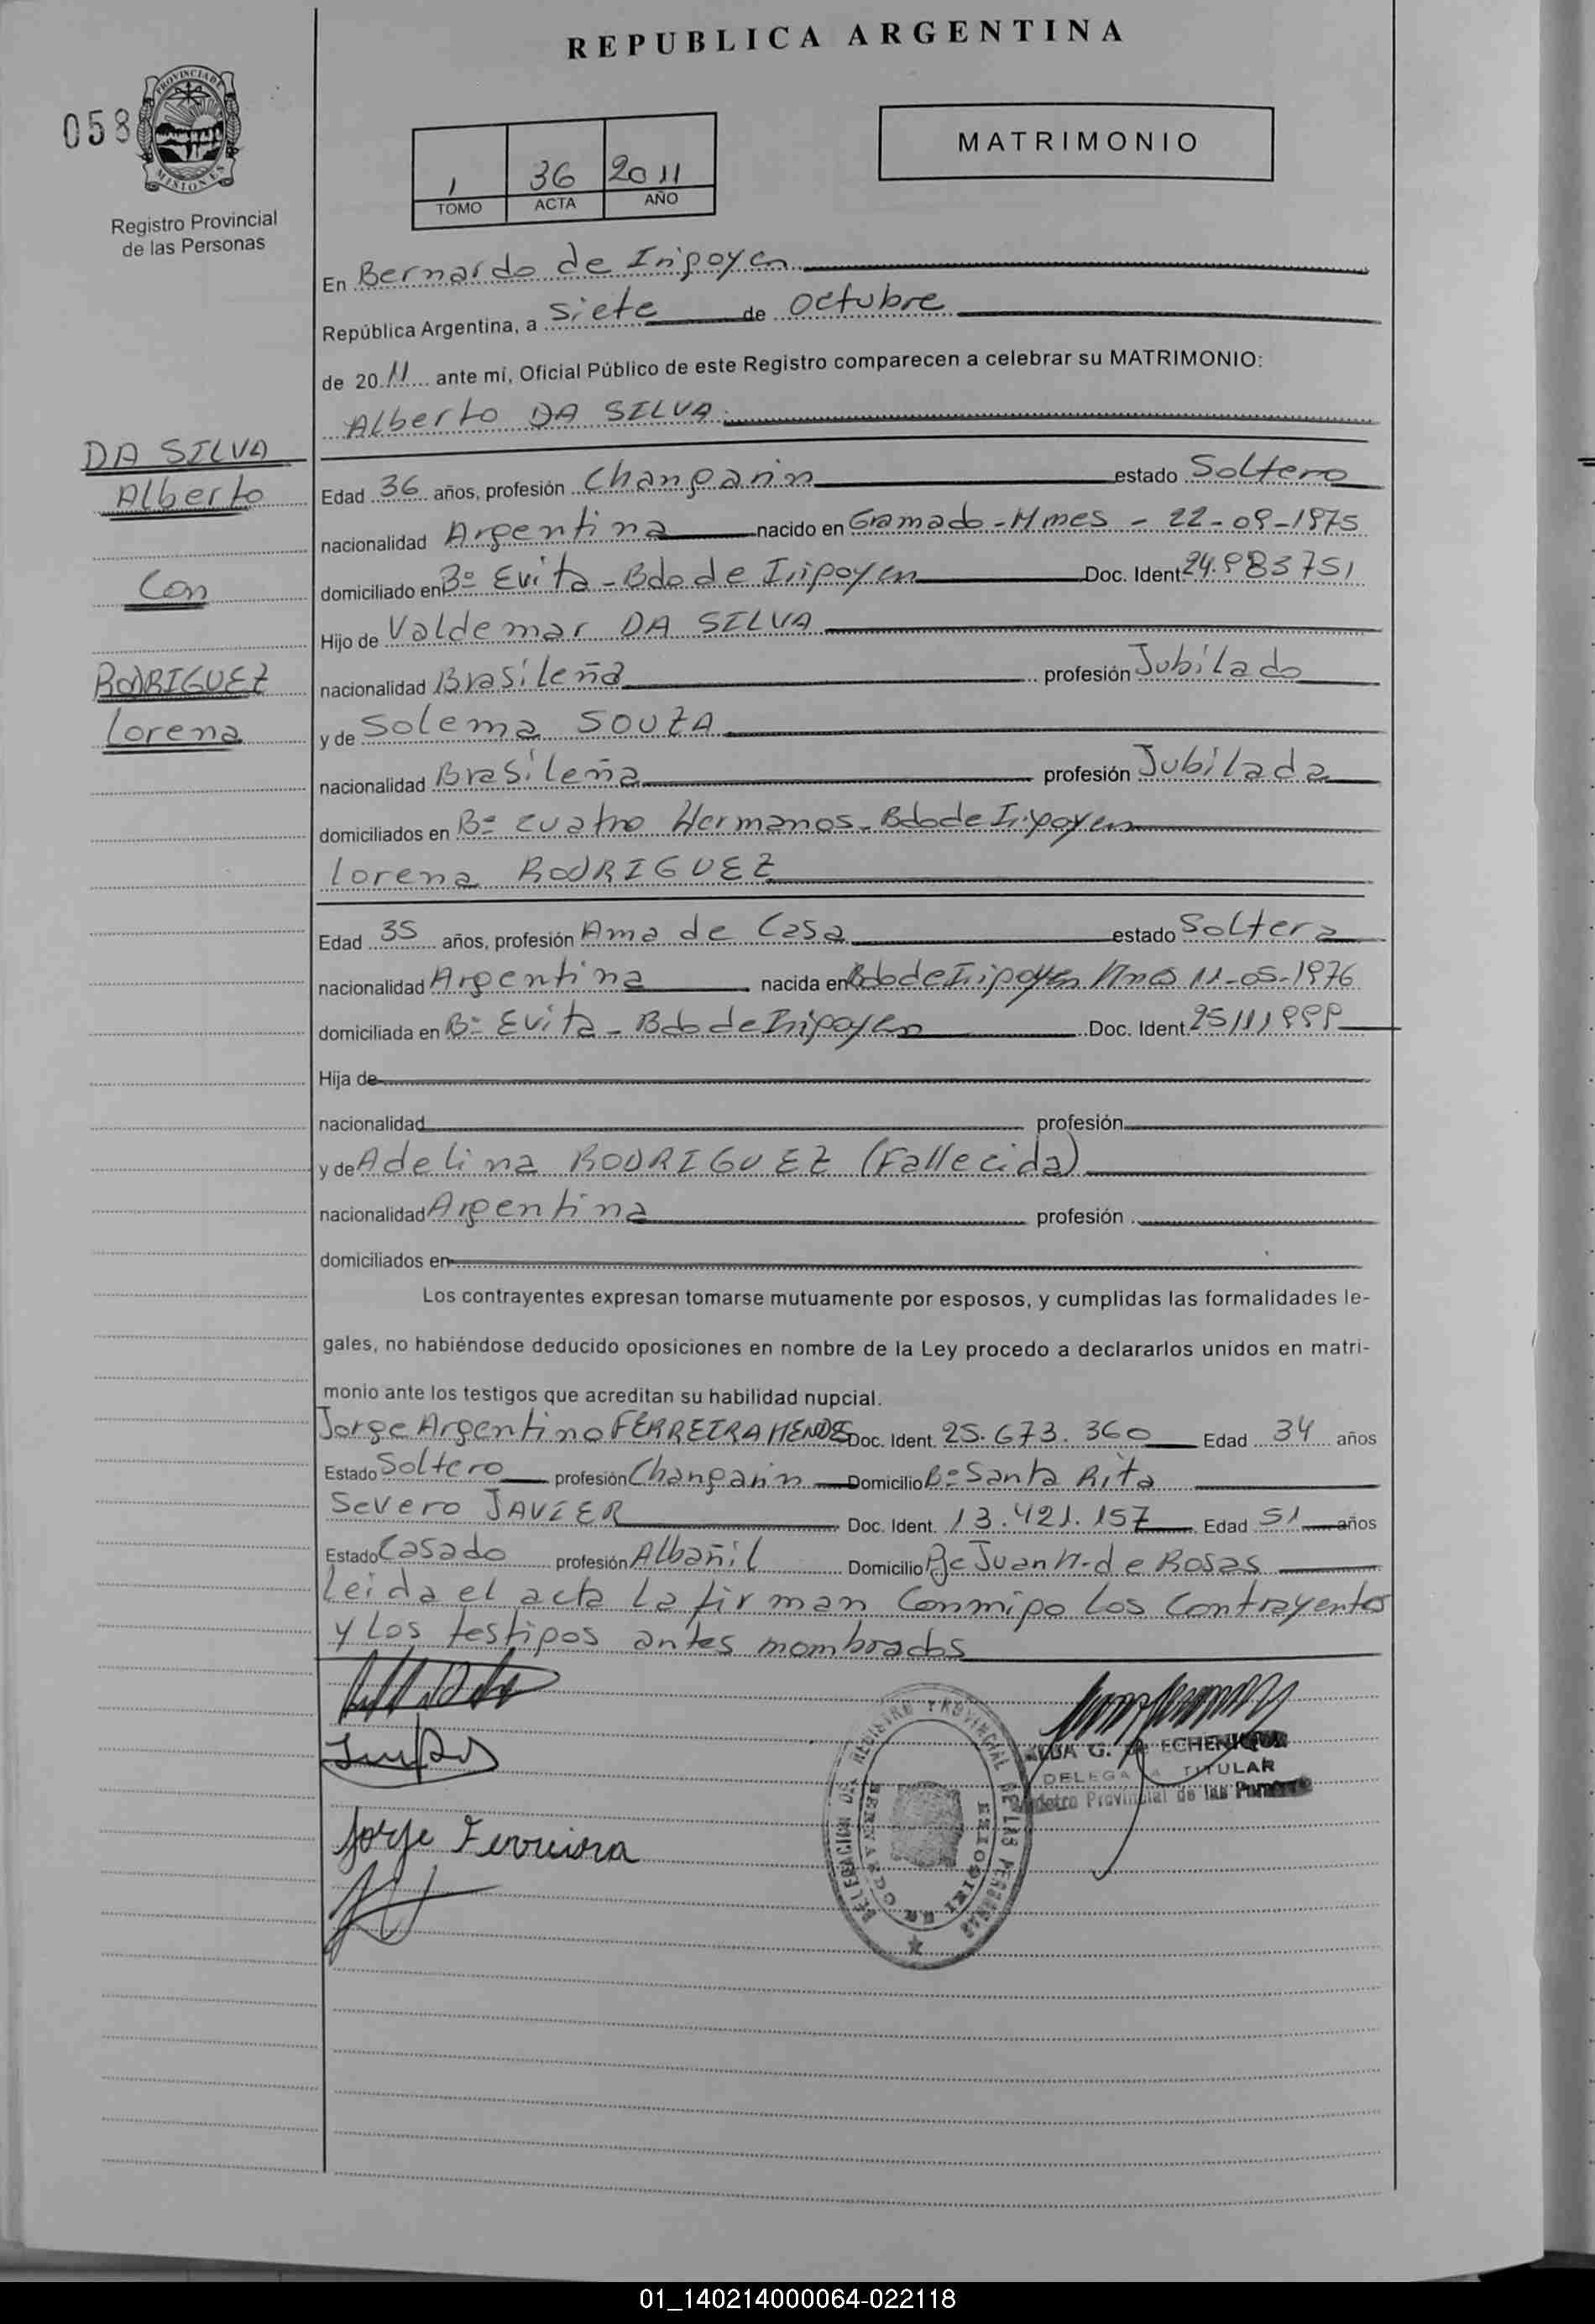 REPUBLICA ARGENTINA
058
PROVINCIA DE MISIONES
Registro Provincial
de las Personas
1 36 2011
TOMO ACTA AÑO
MATRIMONIO
En Bernardo de Irigoyen
República Argentina, a siete de octubre
de 2011 ante mí, Oficial Público de este Registro comparecen a celebrar su MATRIMONIO:
Alberto DA SILVA
DA SILVA
Alberto
Con
RODRIGUEZ
Lorena
Edad 36 años, profesión Changarin estado Soltero
nacionalidad Argentina nacido en Gramado - Mnes - 22-09-1975
domiciliado en Bº Evita - Bdo de Irigoyen Doc. Ident 24.983751
Hijo de Valdemar DA SILVA
nacionalidad Brasileña profesión Jubilado
y de Solema SOUZA
nacionalidad Brasileña profesión Jubilada
domiciliados en Bº Cuatro Hermanos - Bdo de Irigoyen
Lorena RODRIGUEZ
Edad 35 años, profesión Ama de Casa estado Soltera
nacionalidad Argentina nacida en Bdo de Irigoyen Mnes 11-05-1976
domiciliada en Bº Evita - Bdo de Irigoyen Doc. Ident. 25111999
Hija de
nacionalidad profesión
y de Adelina RODRIGUEZ (Fallecida)
nacionalidad Argentina profesión
domiciliados en
Los contrayentes expresan tomarse mutuamente por esposos, y cumplidas las formalidades le-
gales, no habiéndose deducido oposiciones en nombre de la Ley procedo a declararlos unidos en matri-
monio ante los testigos que acreditan su habilidad nupcial.
Jorge Argentino FERREIRA MENDES Doc. Ident. 25.673.360 Edad 34 años
Estado Soltero profesión Changarin Domicilio Bº Santa Rita
Severo JAVIER Doc. Ident. 13.421.157 Edad 51 años
Estado Casado profesión Albañil Domicilio Pje Juan M. de Rosas
Leida el acta la firman Conmigo los Contrayentes
y los testigos antes nombrados
Jorge Ferreira
DELEGACION DEL REGISTRO PROVINCIAL DE LAS PERSONAS
BERNARDO DE IRIGOYEN
ALBA G. de ECHENIQUE
DELEGADA TITULAR
Registro Provincial de las Personas
01_140214000064-022118